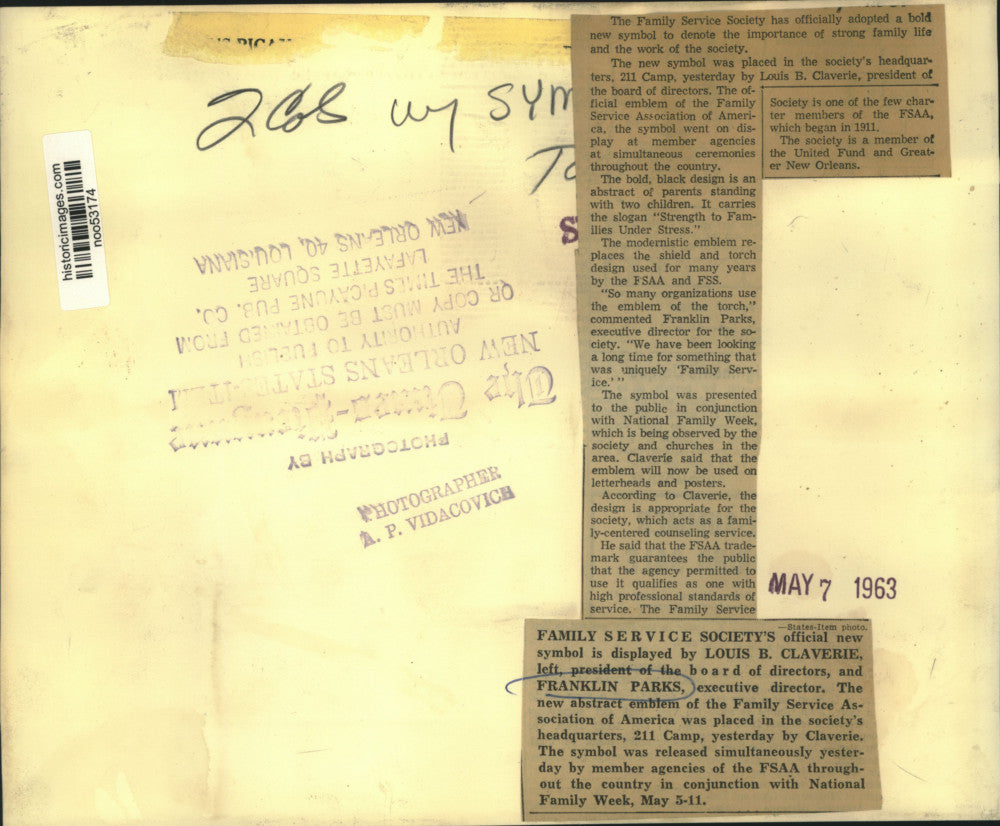 The Family Service Society has officially adopted a bold
new symbol to denote the importance of strong family life
and the work of the society.
The new symbol was placed in the society's headquar-
ters, 211 Camp, yesterday by Louis B. Claverie, president of
the board of directors. The of-
ficial emblem of the Family
Service Association of Ameri-
ca, the symbol went on dis-
play at member agencies
at simultaneous ceremonies
throughout the country.
The bold, black design is an
abstract of parents standing
with two children. It carries
the slogan "Strength to Fam-
ilies Under Stress."
The modernistic emblem re-
places the shield and torch
design used for many years
by the FSAA and FSS.
"So many organizations use
the emblem of the torch,"
commented Franklin Parks,
executive director for the so-
ciety. "We have been looking
a long time for something that
was uniquely 'Family Serv-
ice.' "
The symbol was presented
to the public in conjunction
with National Family Week,
which is being observed by the
society and churches in the
area. Claverie said that the
emblem will now be used on
letterheads and posters.
According to Claverie, the
design is appropriate for the
society, which acts as a fami-
ly-centered counseling service.
He said that the FSAA trade-
mark guarantees the public
that the agency permitted to
use it qualifies as one with
high professional standards of
service. The Family Service
Society is one of the few char-
ter members of the FSAA,
which began in 1911.
The society is a member of
the United Fund and Great-
er New Orleans.
2 Cols w/ SYM
To
historicimages.com
noo53174
PHOTOGRAPH BY
The Times-Picayune
NEW ORLEANS STATES-ITEM
AUTHORITY TO PUBLISH
OR COPY MUST BE OBTAINED FROM
THE TIMES PICAYUNE PUB. CO.
LAFAYETTE SQUARE
NEW ORLEANS 40, LOUISIANA
S
PHOTOGRAPHER
A. P. VIDACOVICH
MAY 7 1963
—States-Item photo.
FAMILY SERVICE SOCIETY'S official new
symbol is displayed by LOUIS B. CLAVERIE,
left, president of the board of directors, and
FRANKLIN PARKS, executive director. The
new abstract emblem of the Family Service As-
sociation of America was placed in the society's
headquarters, 211 Camp, yesterday by Claverie.
The symbol was released simultaneously yester-
day by member agencies of the FSAA through-
out the country in conjunction with National
Family Week, May 5-11.